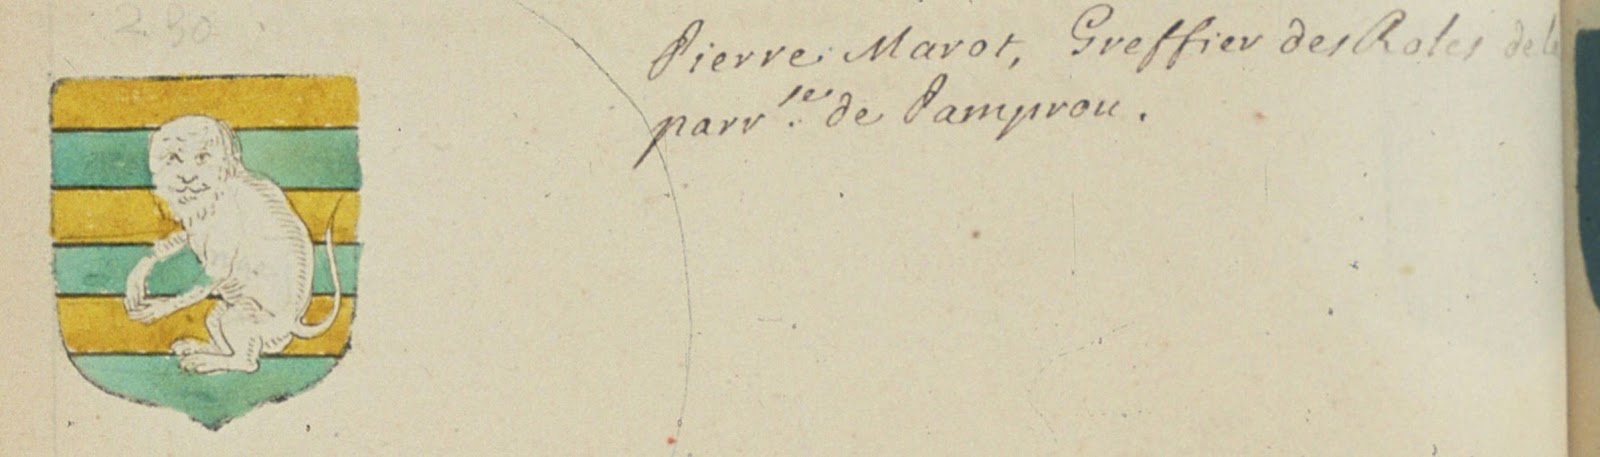 290
Pierre Marot, Greffier des Roles de la
parr.se de Pamprou.